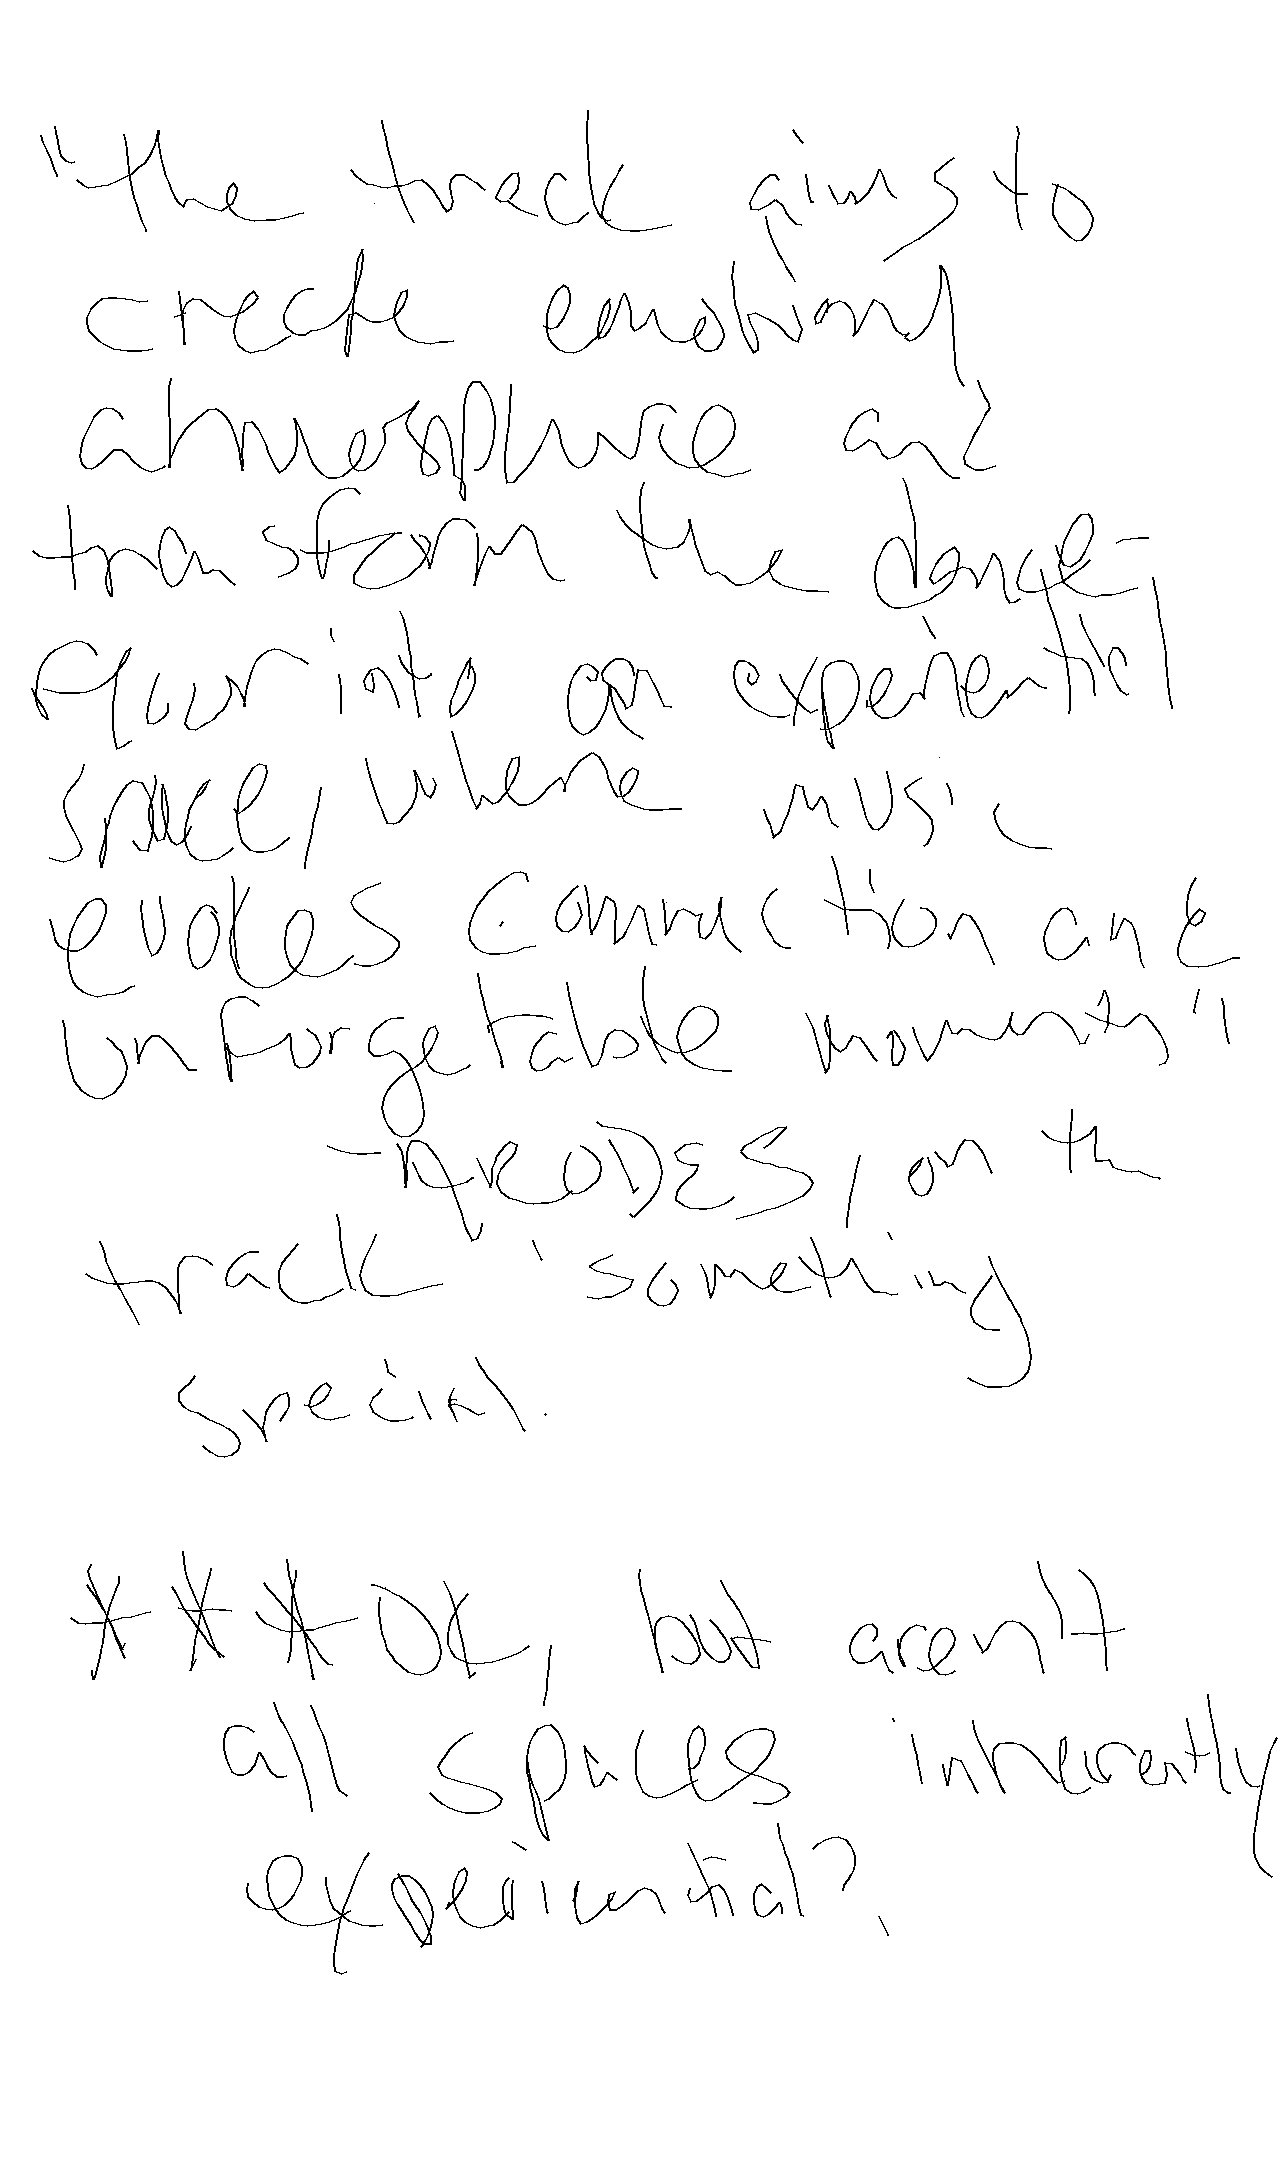 "the track aims to
create emotional
atmosphere and
transform the dance-
floor into an experiential
space, where music
evokes connection and
unforgetable moments"
- ARODES, on the
track 'something
special.
***OK, but aren't
all spaces inherently
experiential?